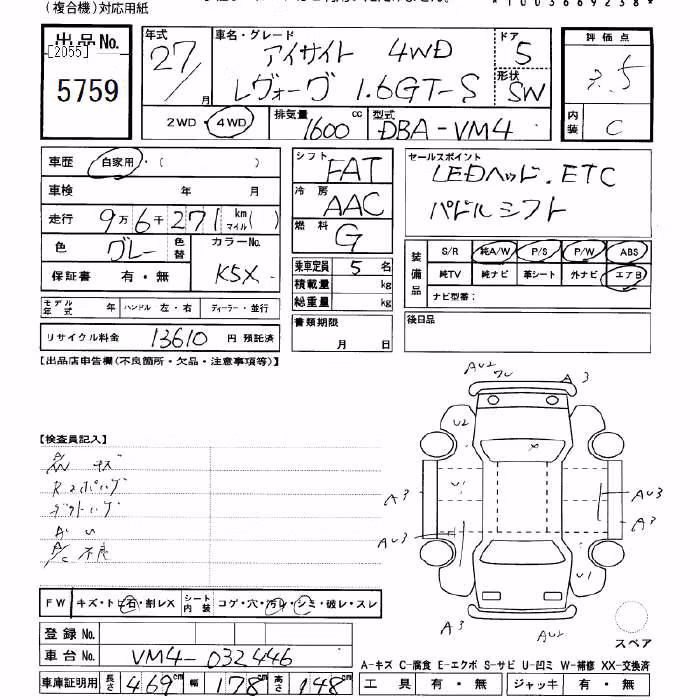 (複合機)対応用紙
*1003669238*
出品No.
[2055]
5759
年式
27/月
車名・グレード
アイサイト 4WD
レヴォーグ 1.6GT-S
ドア
5
形状
SW
2WD・4WD
排気量
1600 cc
型式
DBA-VM4
評価点
3.5
内装
C
車歴 自家用・( )
車検 年 月
走行 9万6千271 km マイル( )
色 グレー 色替 カラーNo. K5X
保証書 有・無
モデル年式 年 ハンドル 左・右 ディーラー・並行
リサイクル料金 13610 円 預託済
シフト FAT
冷房 AAC
燃料 G
乗車定員 5 名
積載量 kg
総重量 kg
書類期限
月 日
セールスポイント
LEDヘッド. ETC
パドルシフト
装備品
S/R 純A/W P/S P/W ABS
純TV 純ナビ 革シート 外ナビ エアB
ナビ型番:
後日品
【出品店申告欄(不良箇所・欠品・注意事項等)】
【検査員記入】
キズ
不良
AU2
A3
U2
U1
A3
AU3
A3
AU3
U1
A3
AU2
スペア
FW キズ・トビ石・割レX シート内装 コゲ・穴・汚レ・シミ・破レ・スレ
登録No.
車台No. VM4-032446
車庫証明用 長さ 469cm 幅 178cm 高さ 148cm
A-キズ C-腐食 E-エクボ S-サビ U-凹ミ W-補修 XX-交換済
工具 有・無 ジャッキ 有・無